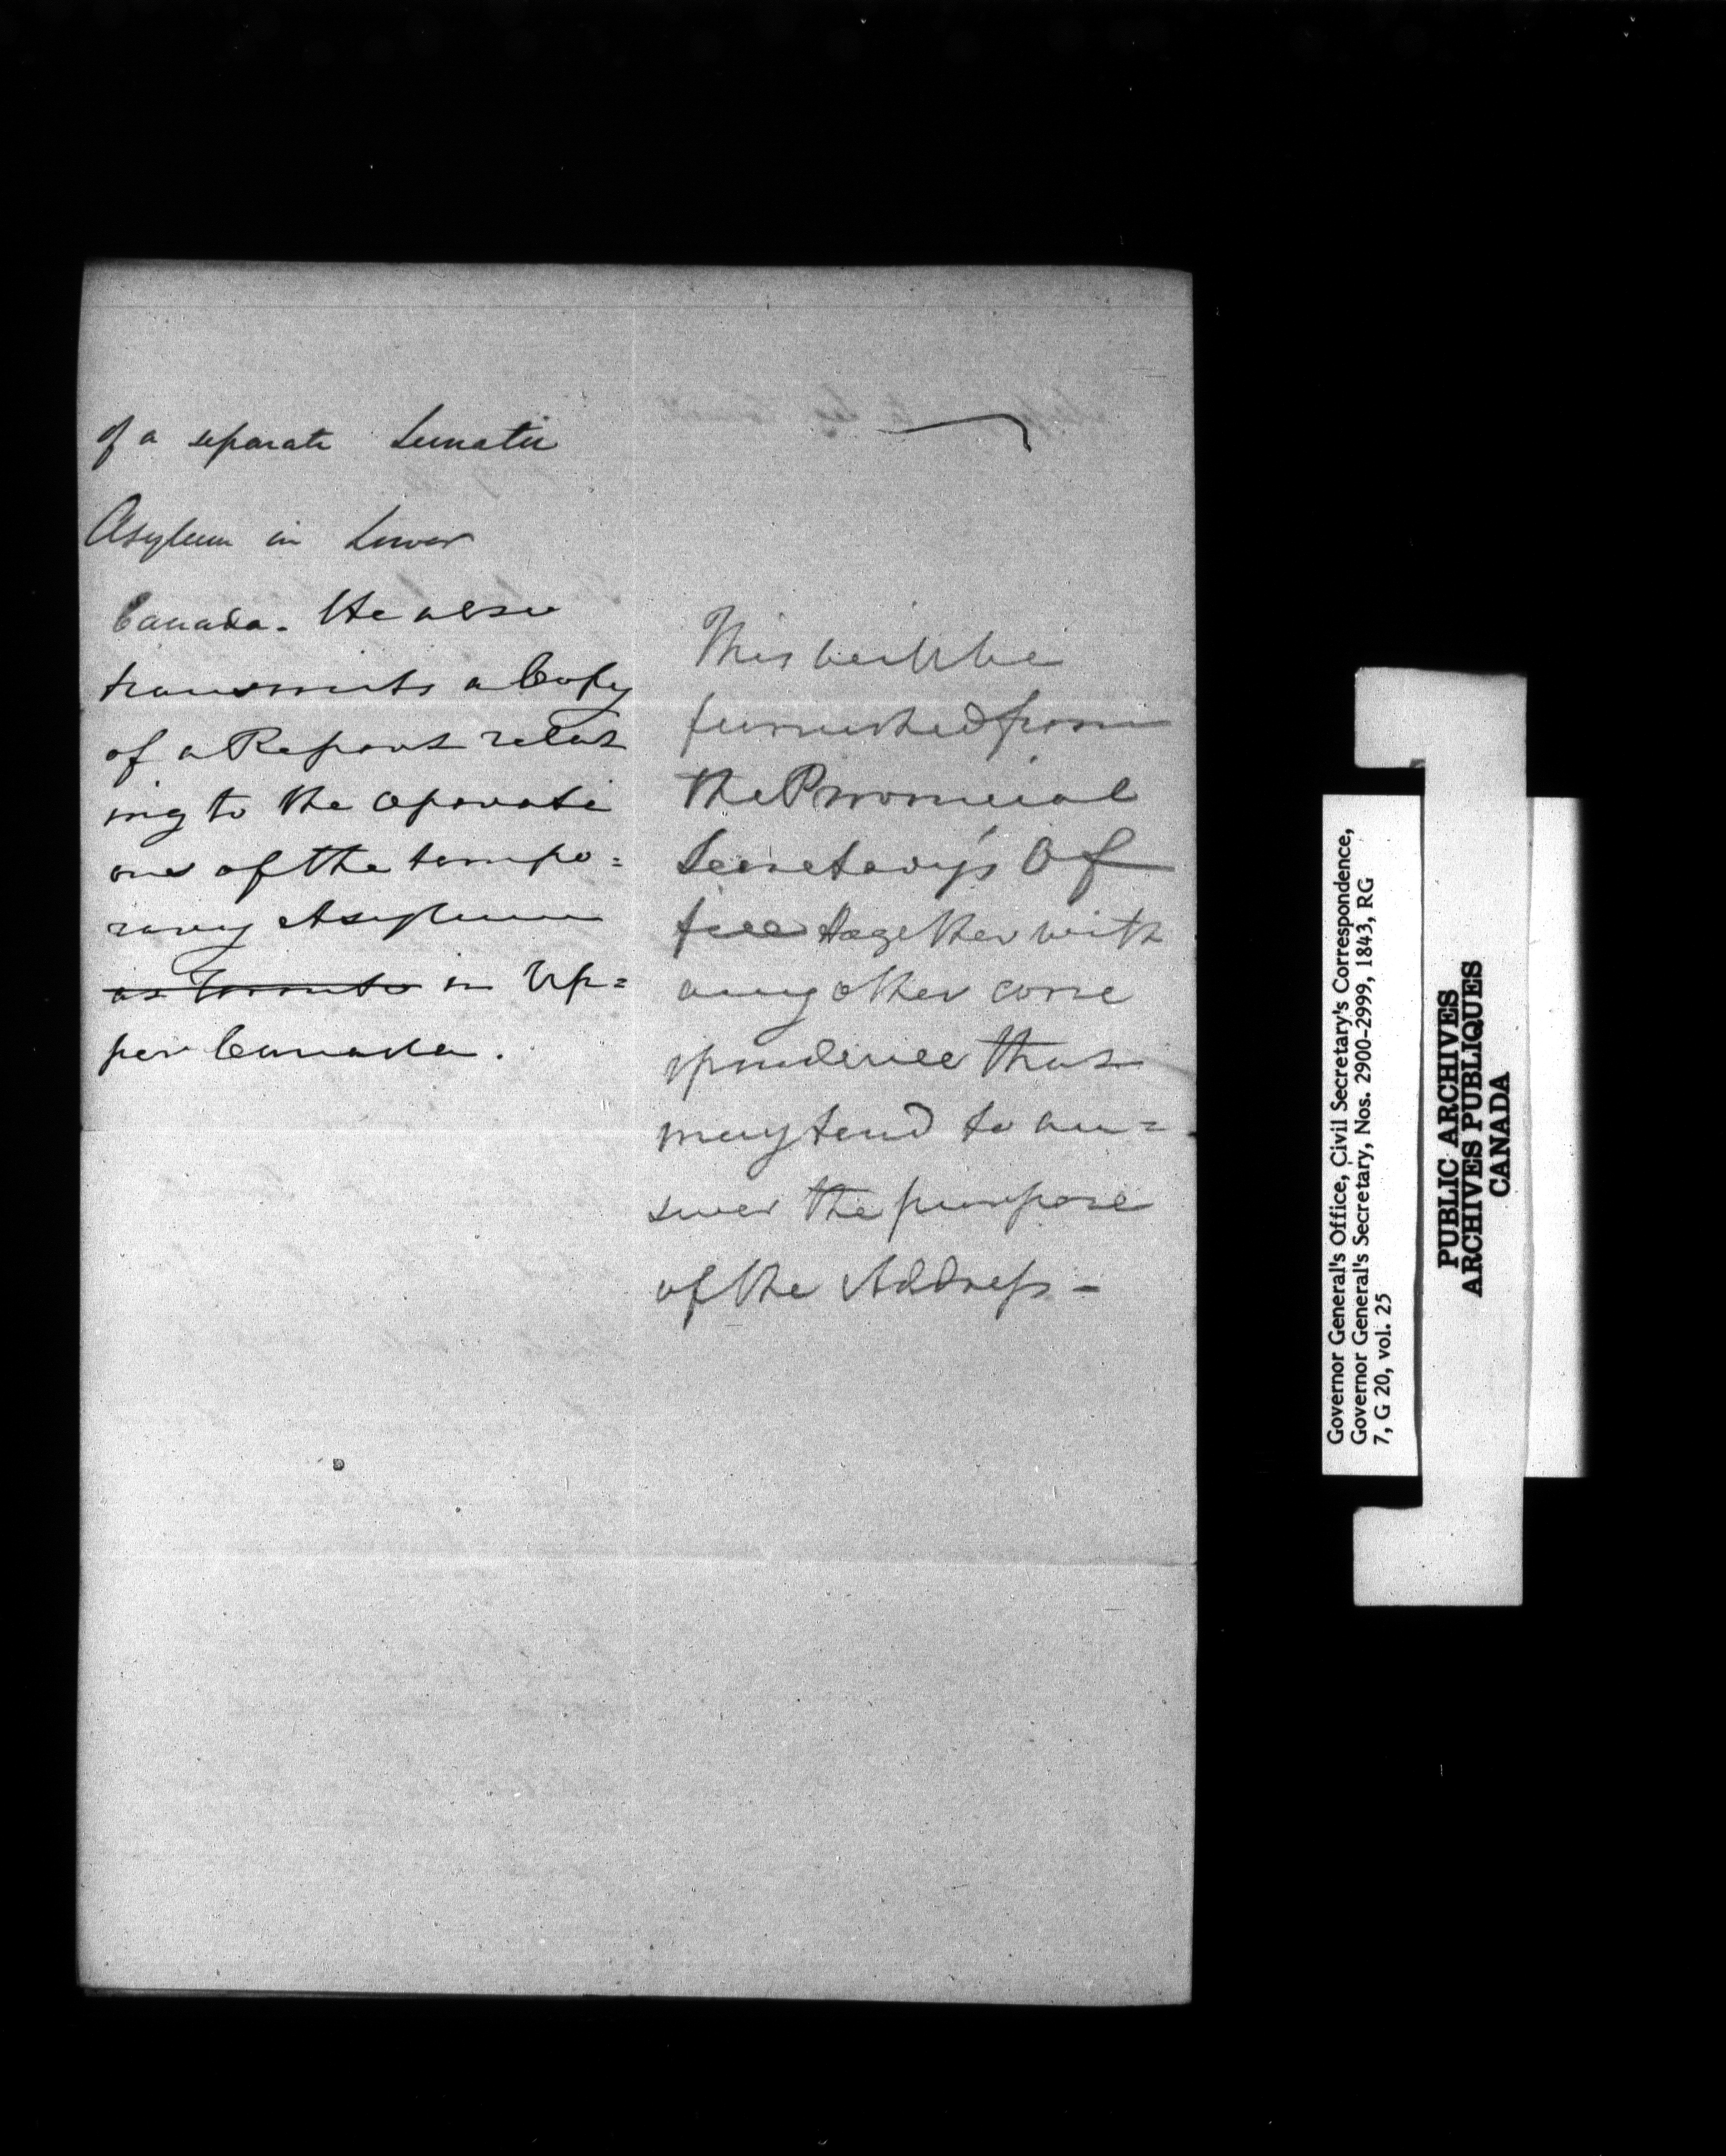 of a separate Lunatic
Asylum in Lower
Canada. He also
transmits a Copy
of a Report relat
ing to the operati
ons of the tempo=
rary Asylum
at Toronto in Up=
per Canada.
This will be
furnished from
the Provincial
Secretary's Of
fice together with
any other corre
spondence that
may tend to an=
swer the purpose
of the Address -
Governor General's Office, Civil Secretary's Correspondence,
Governor General's Secretary, Nos. 2900-2999, 1843, RG
7, G 20, vol. 25
PUBLIC ARCHIVES
ARCHIVES PUBLIQUES
CANADA